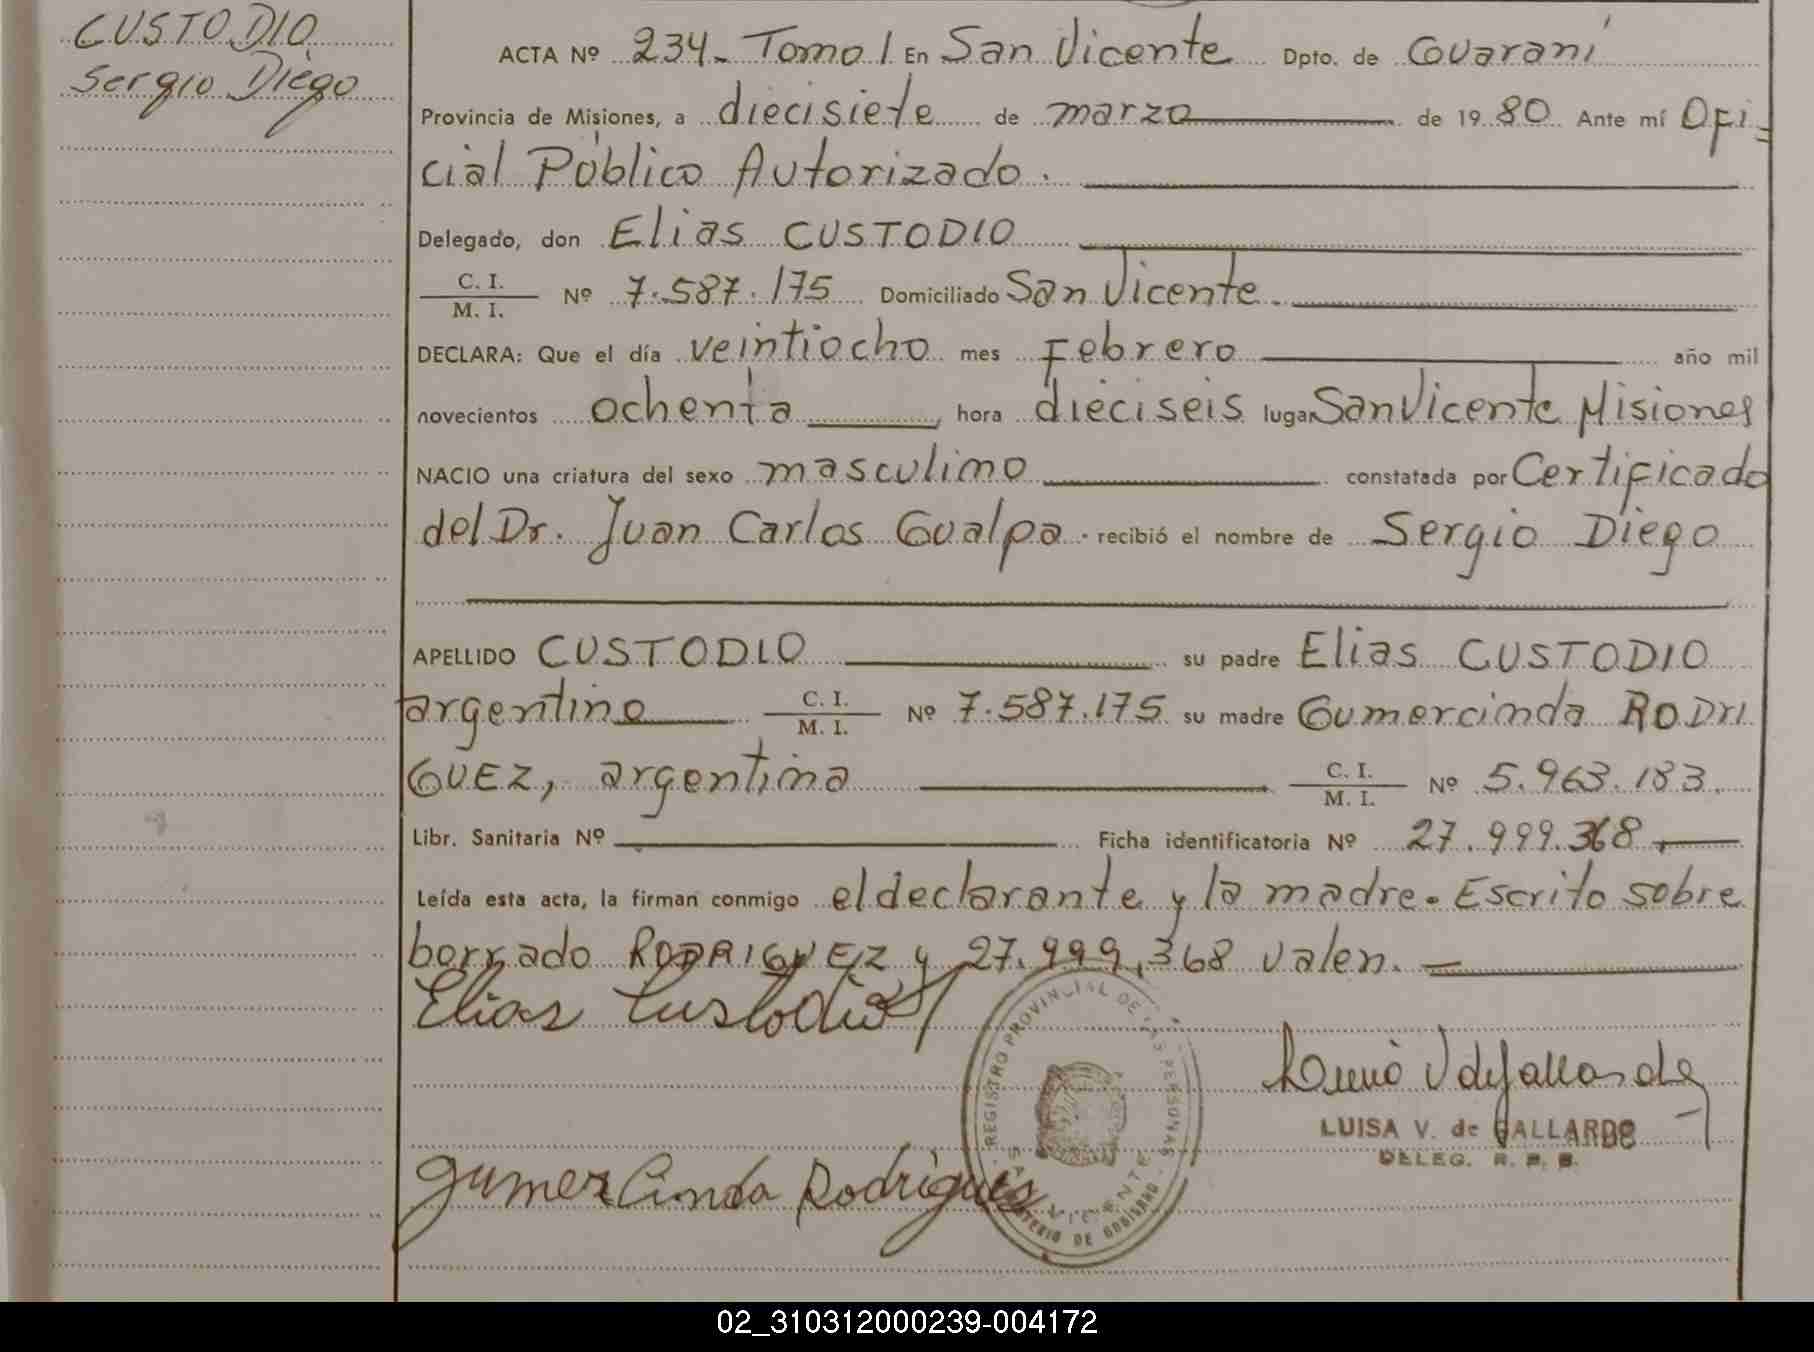 CUSTODIO
Sergio Diego
ACTA Nº 234- Tomo 1 En San Vicente Dpto. de Guaraní
Provincia de Misiones, a diecisiete de marzo de 1980 Ante mí Ofi=
cial Público Autorizado.
Delegado, don Elias CUSTODIO
C. I.
M. I. Nº 7.587.175 Domiciliado San Vicente.
DECLARA: Que el día veintiocho mes Febrero año mil
novecientos ochenta, hora dieciseis lugar San Vicente Misiones
NACIO una criatura del sexo masculino constatada por Certificado
del Dr. Juan Carlos Gualpa. recibió el nombre de Sergio Diego
APELLIDO CUSTODIO su padre Elias CUSTODIO
argentino C. I.
M. I. Nº 7.587.175 su madre Gumercinda RODRI
GUEZ, argentina C. I.
M. I. Nº 5.963.183.
Libr. Sanitaria Nº Ficha identificatoria Nº 27.999.368
Leída esta acta, la firman conmigo el declarante y la madre. Escrito sobre
borrado RODRIGUEZ y 27.999.368 valen.
Elias Custodio
REGISTRO PROVINCIAL DE LAS PERSONAS
SAN VICENTE
MINISTERIO DE GOBIERNO
LUISA V. de GALLARDO
DELEG. R. P. P.
Gumercinda Rodrigues